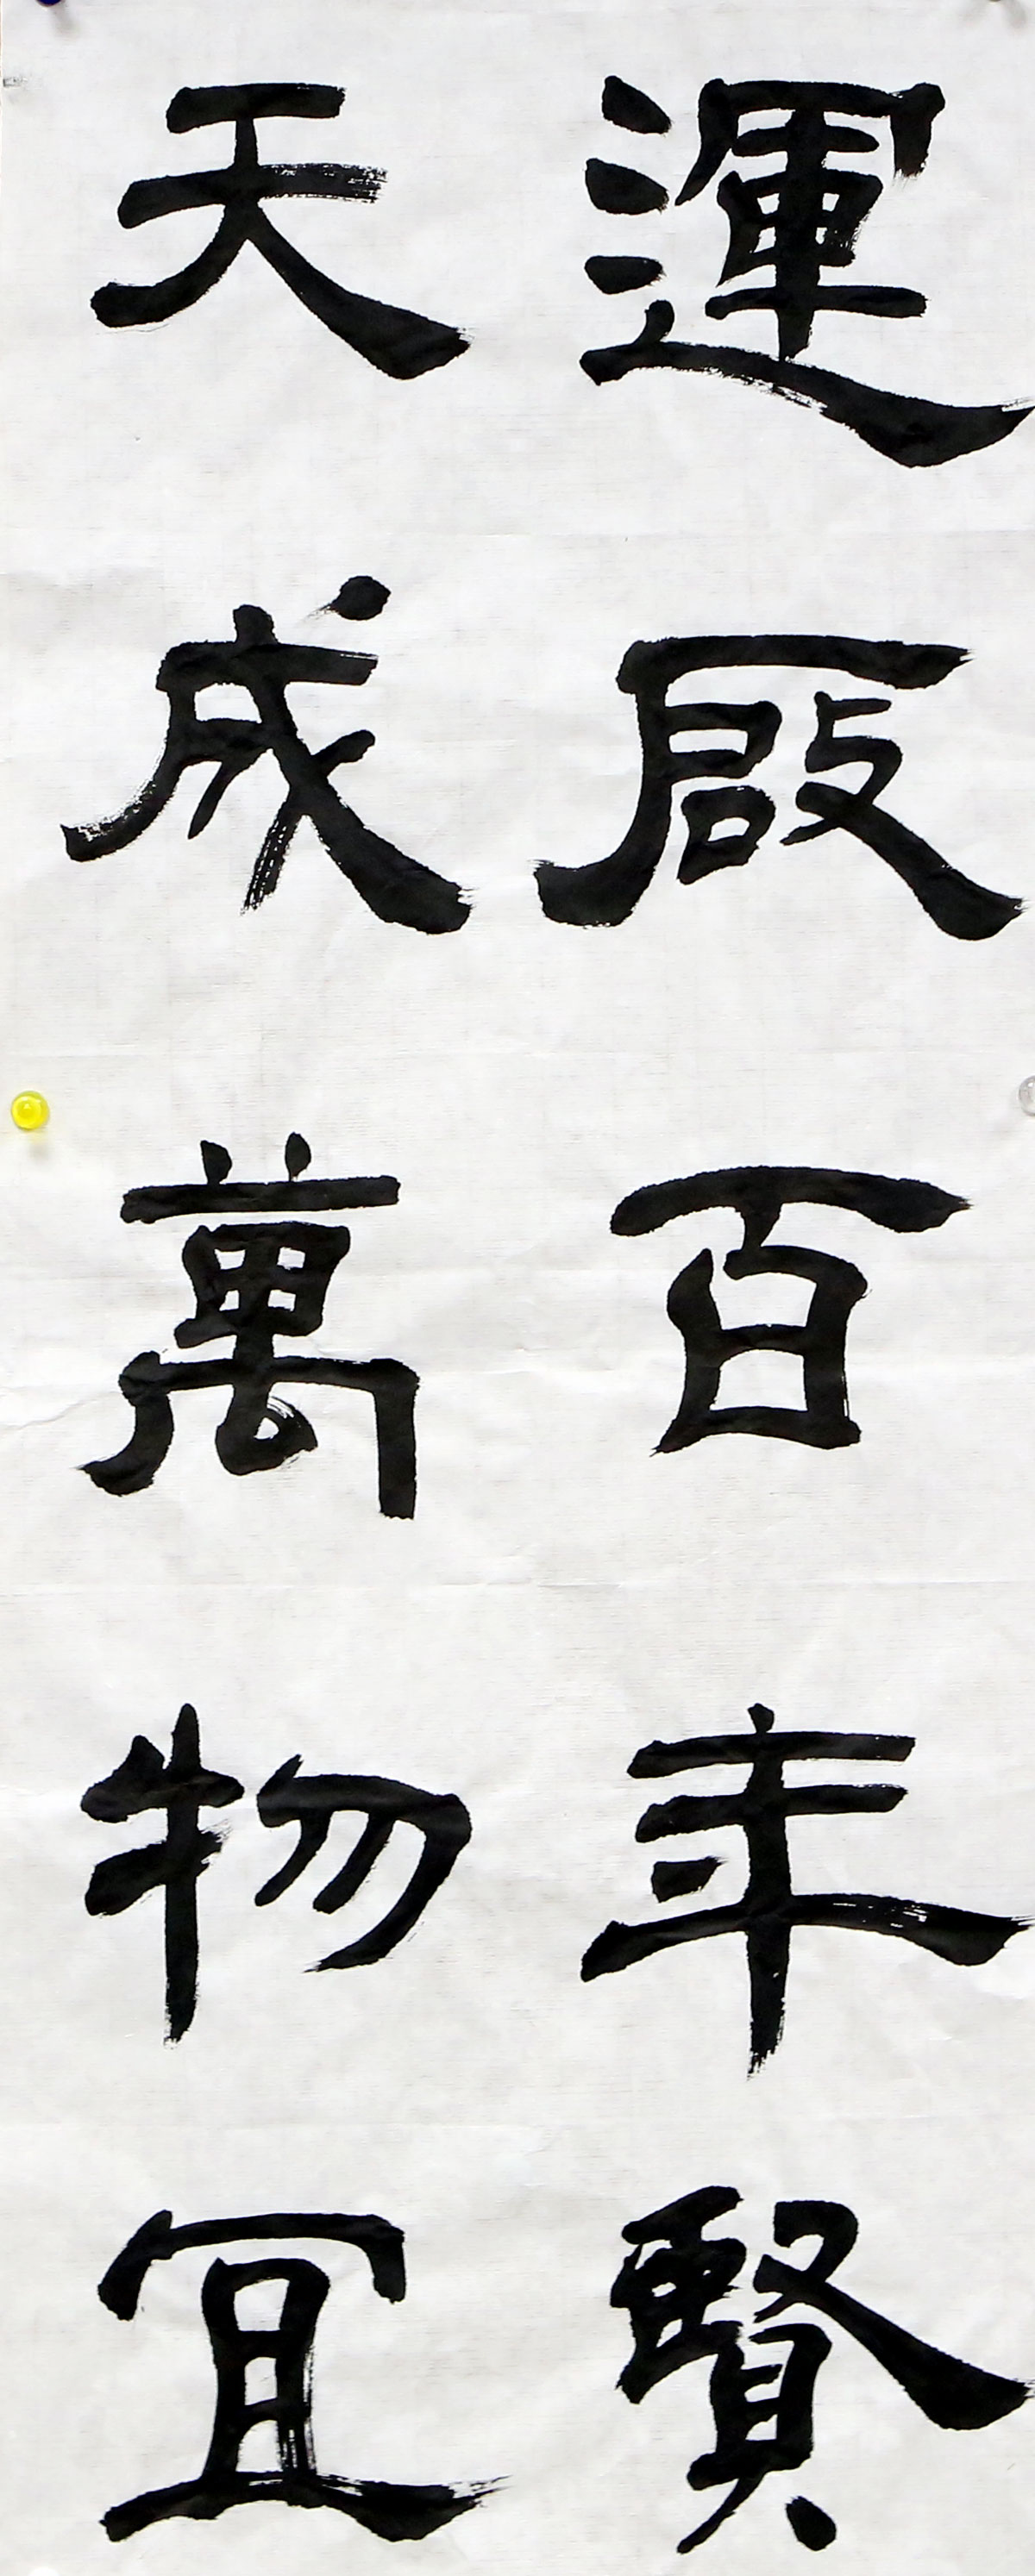 運啟百年賢
天成萬物冝